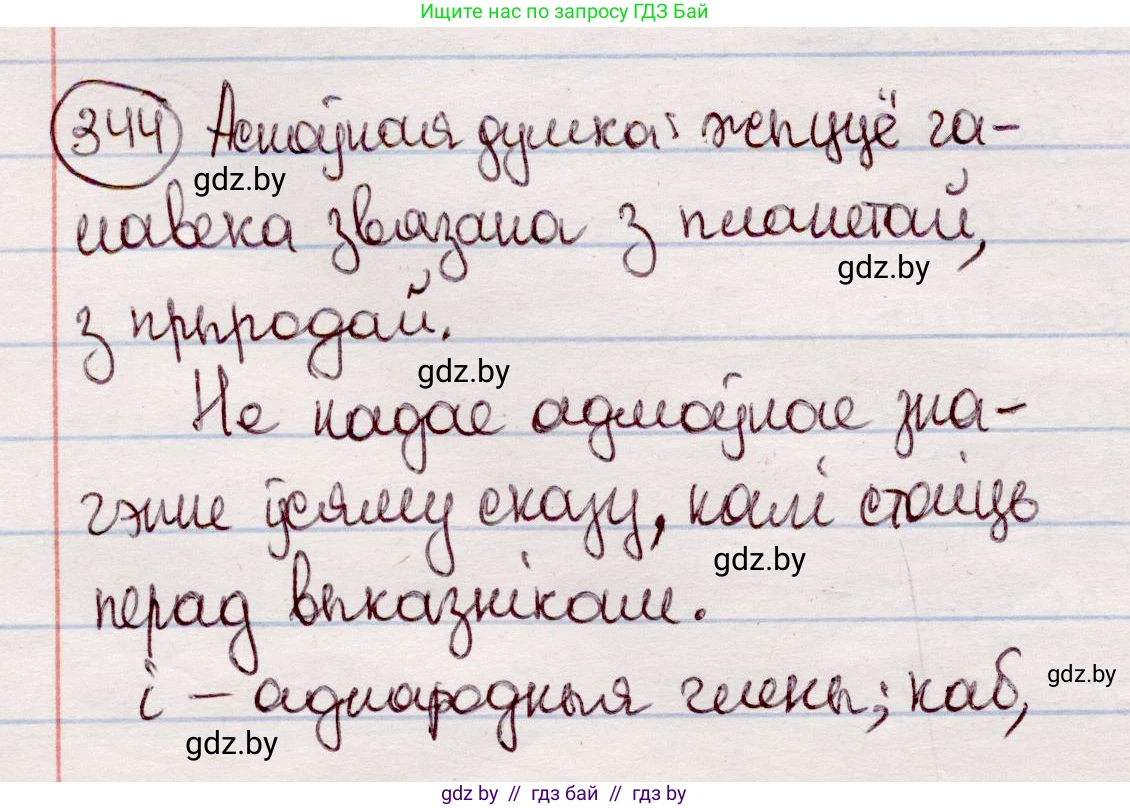 Ищите нас по запросу ГДЗ Бай
344 Асноўная думка: жыццё ча-
gdz.by
лавека звязана з планетай,
gdz.by
з прыродай.
gdz.by
Не надае адмоўнае зна-
чэнне ўсяму сказу, калі стаіць
gdz.by
перад выказнікам.
і – аднародныя члены; каб,
gdz.by
gdz.by
gdz.by // гдз бай // гдз by